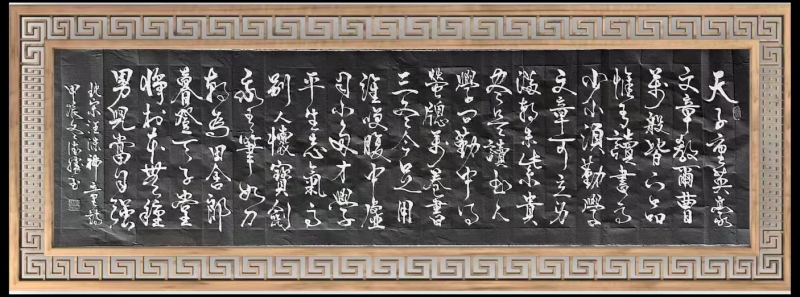 天子重英豪
文章教爾曹
萬般皆下品
惟有讀書高
少小須勤學
文章可立身
滿朝朱紫貴
盡是讀書人
學向勤中得
螢牕萬卷書
三冬今足用
誰笑腹中虛
自小多才學
平生志氣高
別人懷寶劍
我有筆如刀
朝為田舍郎
暮登天子堂
將相本無種
男兒當自強
北宋汪洙神童詩
甲辰